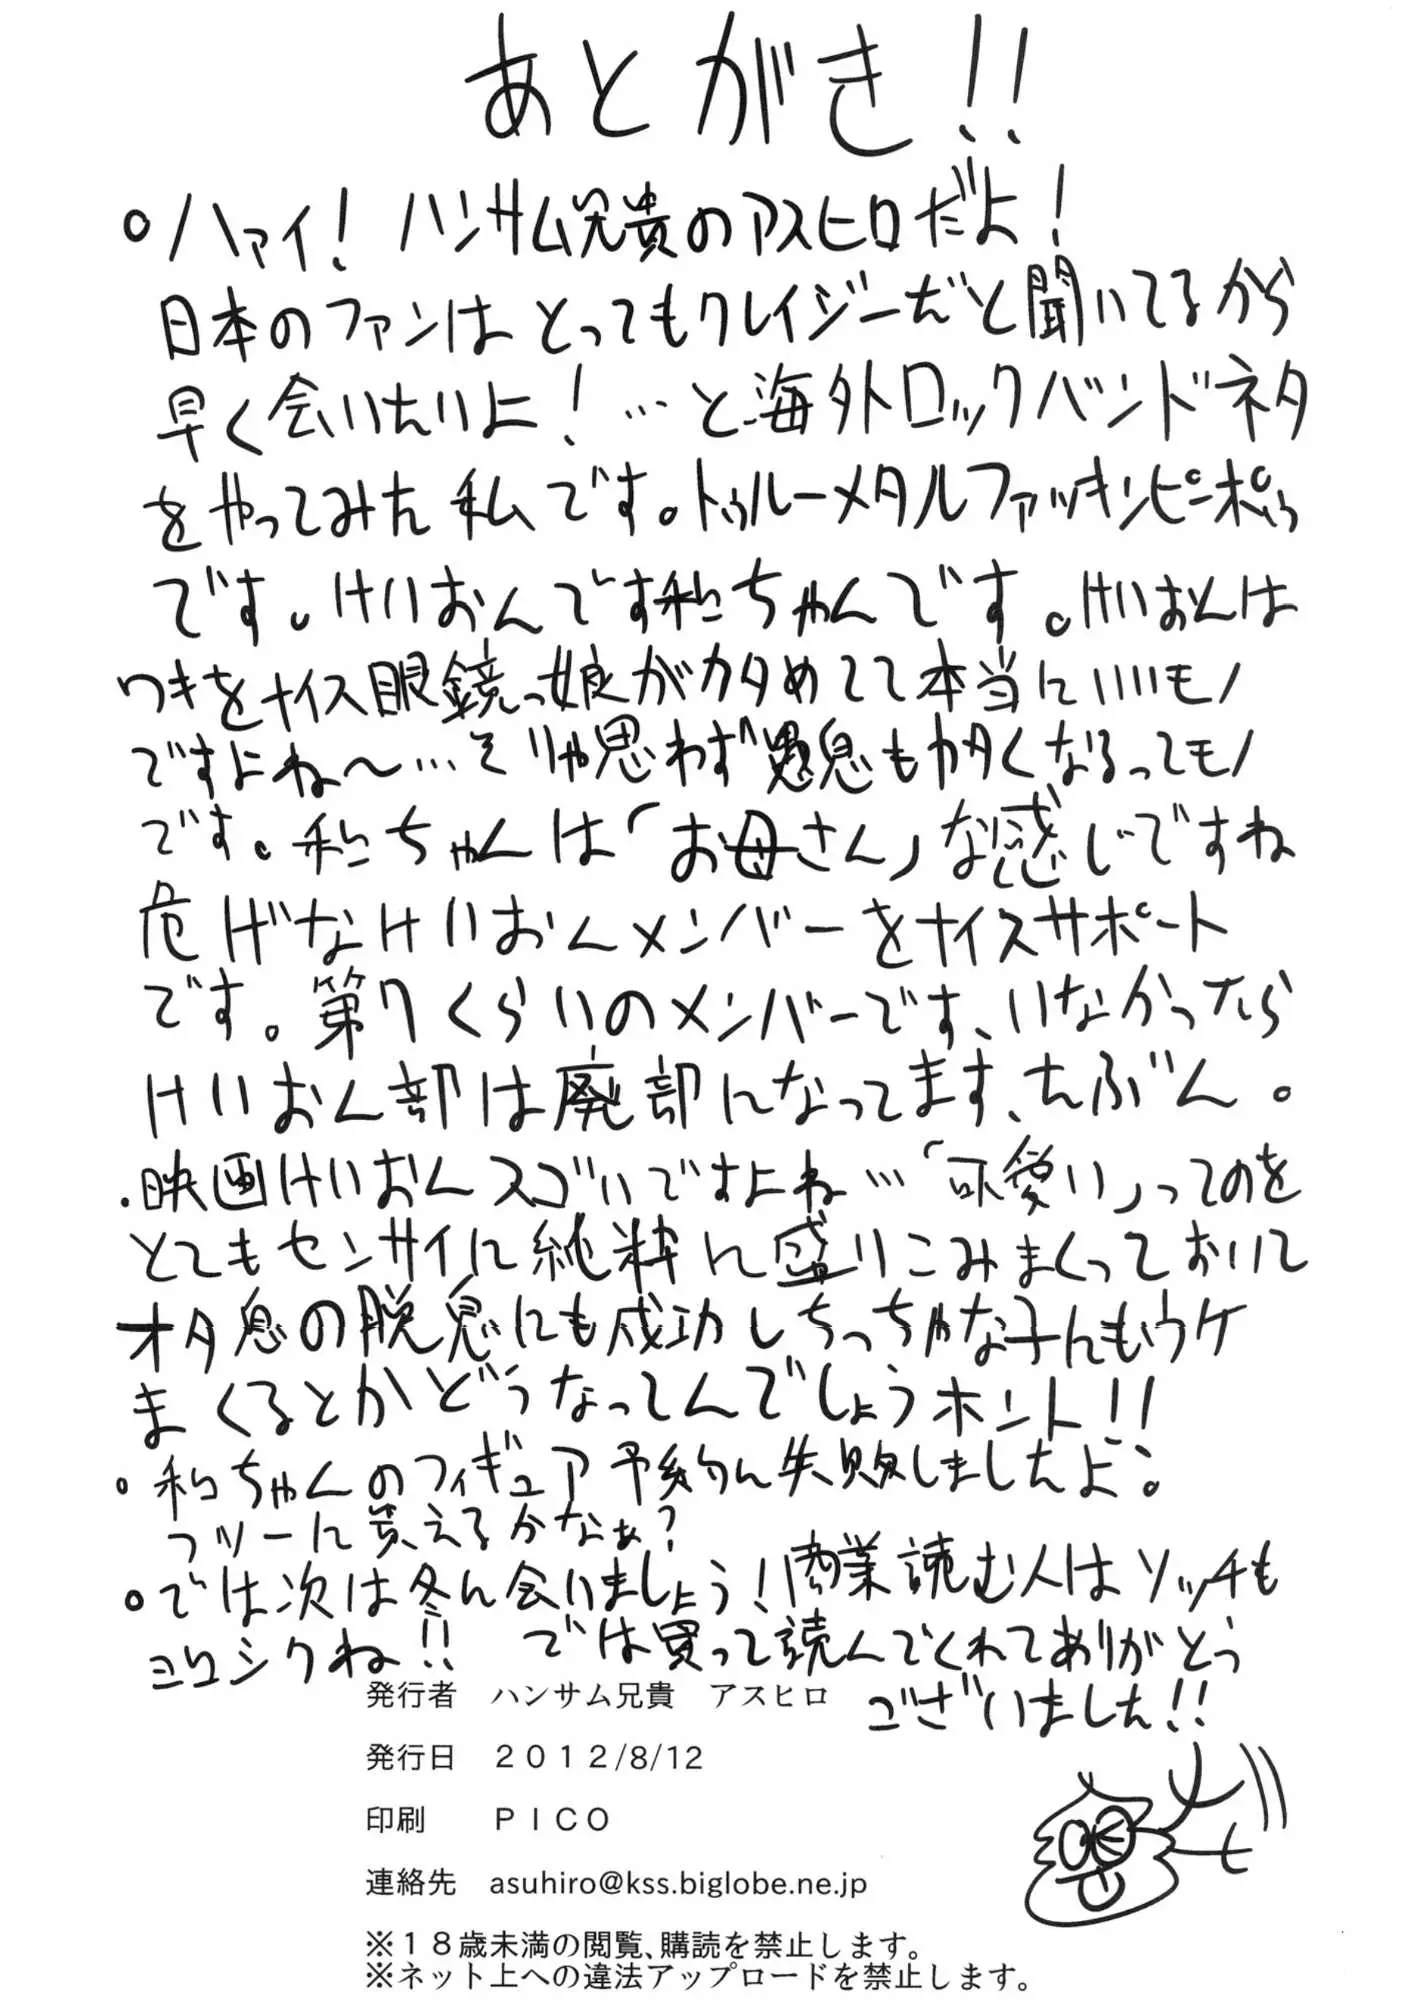 あとがき!!
○ハァイ!ハンサム兄貴のアスヒロだよ!
日本のファンはとってもクレイジーだと聞いてるから
早く会いたいよ!…と海外ロックバンドネタ
をやってみた私です。トゥルーメタルファッキンピンポゥ
です。けいおんです和ちゃんです。けいおんは
ワキをナイス眼鏡っ娘がカタめてて本当にいいモノ
ですよね〜…そりゃ思わず愚息もカタくなるってモノ
です。和ちゃんは「お母さん」な感じですね
危げなけいおんメンバーをナイスサポート
です。第7くらいのメンバーです、いなかったら
けいおん部は廃部になってます、たぶん。
・映画けいおんスゴいですよね…「可愛い」ってのを
とてもセンサイに純粋に盛りこみまくっておいて
オタ臭の脱臭にも成功しちっちゃな子にもウケ
まくるとかどうなってんでしょうホント!!
○和ちゃんのフィギュア予約に失敗しましたよ。
フツーに買えるかなぁ?
○では次は冬に会いましょう!商業読む人はソッチも
ヨロシクね!! では買って読んでくれてありがとう
ございました!!
発行者 ハンサム兄貴 アスヒロ
発行日 2012/8/12
印刷 PICO
連絡先 asuhiro@kss.biglobe.ne.jp
※18歳未満の閲覧、購読を禁止します。
※ネット上への違法アップロードを禁止します。